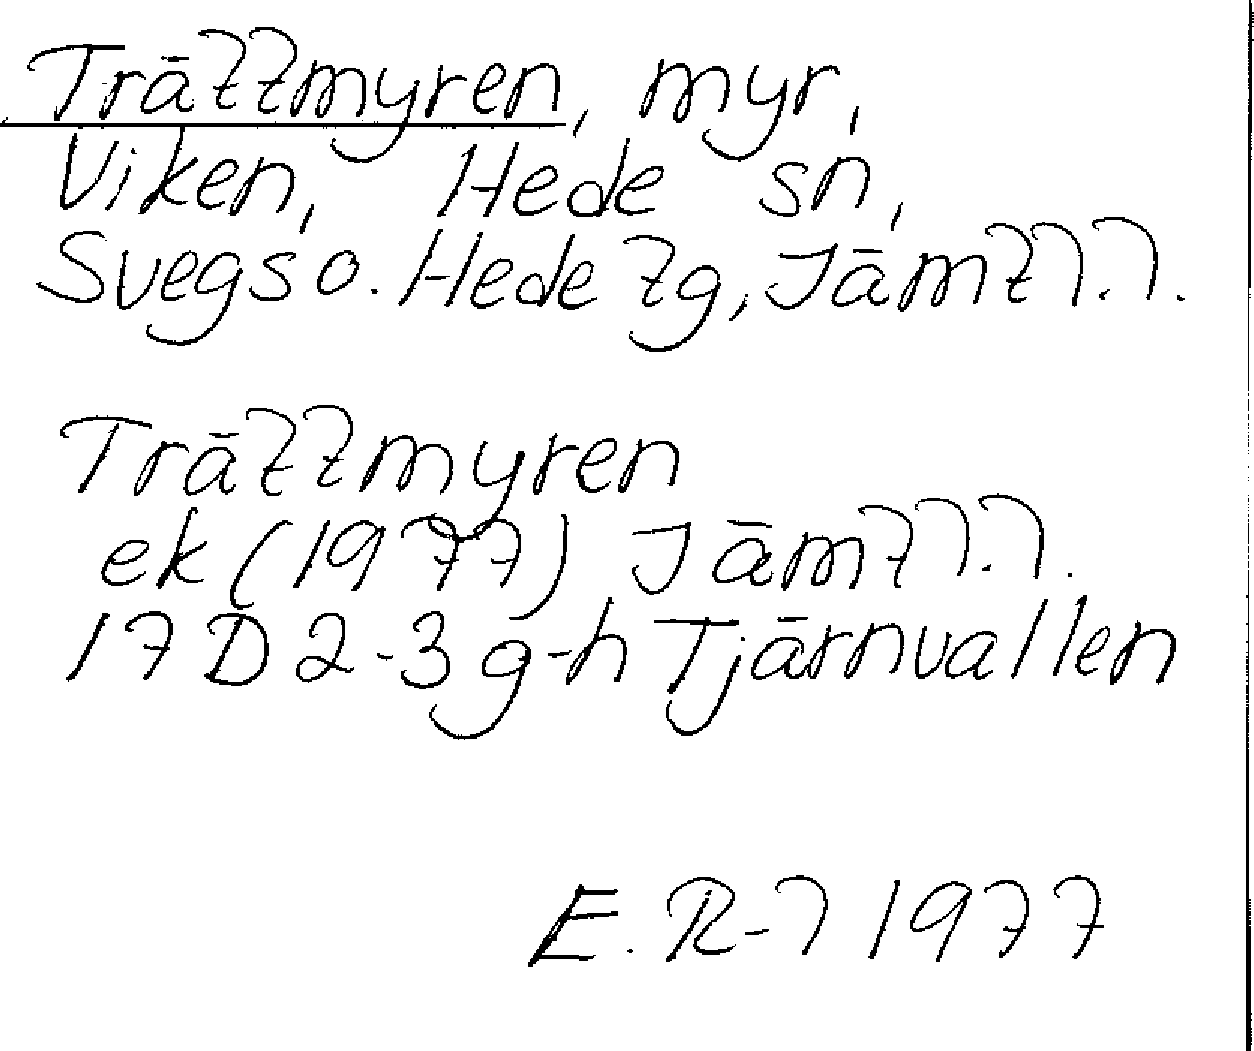 Trättmyren, myr,
Viken, Hede sn,
Svegs o. Hede tg, Jämtl.l.
Trättmyren
ek (1977) Jämtl.l.
17 D 2-3 g-h Tjärnvallen
E. R-l 1977